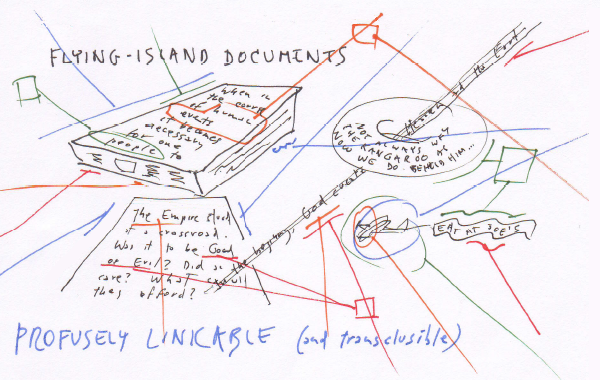 FLYING-ISLAND DOCUMENTS
When in
the course
of human
events
it becomes
necessary
for one
people to
NOT ALWAYS WAS
KANGAROO AS
WE DO BEHOLD HIM...
Heaven and the Eart
In the beginning, God created
The Empire stood
at a crossroad.
Was it to be Good
or Evil? Did
care? What
they afford?
EAT AT JOE'S
PROFUSELY LINKABLE (and transclusible)